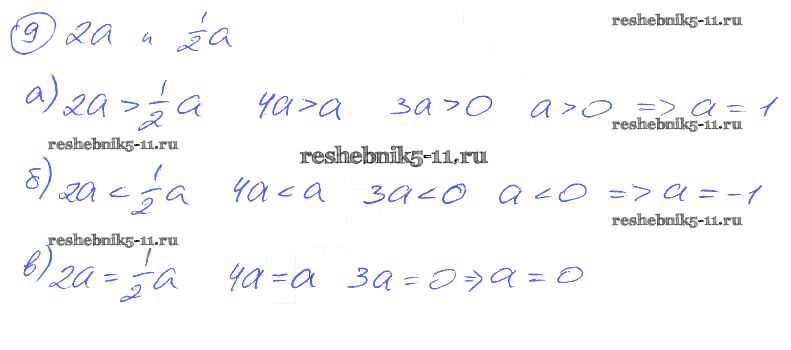 reshebnik5-11.ru
9 2a и 1/2 a
а) 2a > 1/2 a 4a > a 3a > 0 a > 0 => a = 1
reshebnik5-11.ru
reshebnik5-11.ru
reshebnik5-11.ru
б) 2a < 1/2 a 4a < a 3a < 0 a < 0 => a = -1
reshebnik5-11.ru
reshebnik5-11.ru
в) 2a = 1/2 a 4a = a 3a = 0 => a = 0